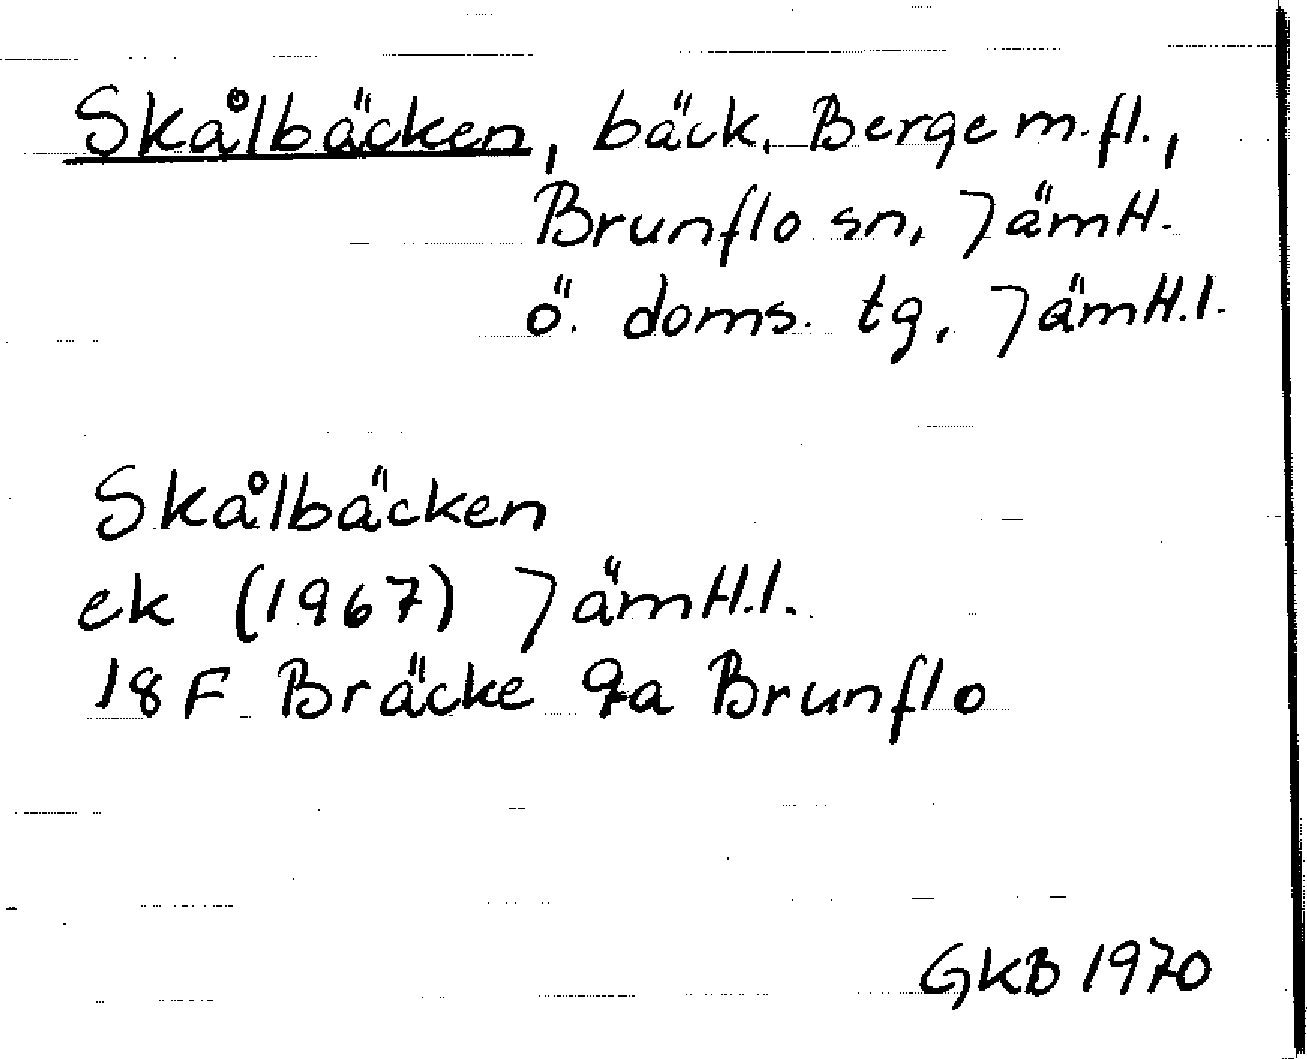 Skålbäcken, bäck, Berge m.fl.,
Brunflo sn, Jämtl.
ö. doms. tg, Jämtl.l.
Skålbäcken
ek (1967) Jämtl.l.
18 F Bräcke 9a Brunflo
GKB 1970